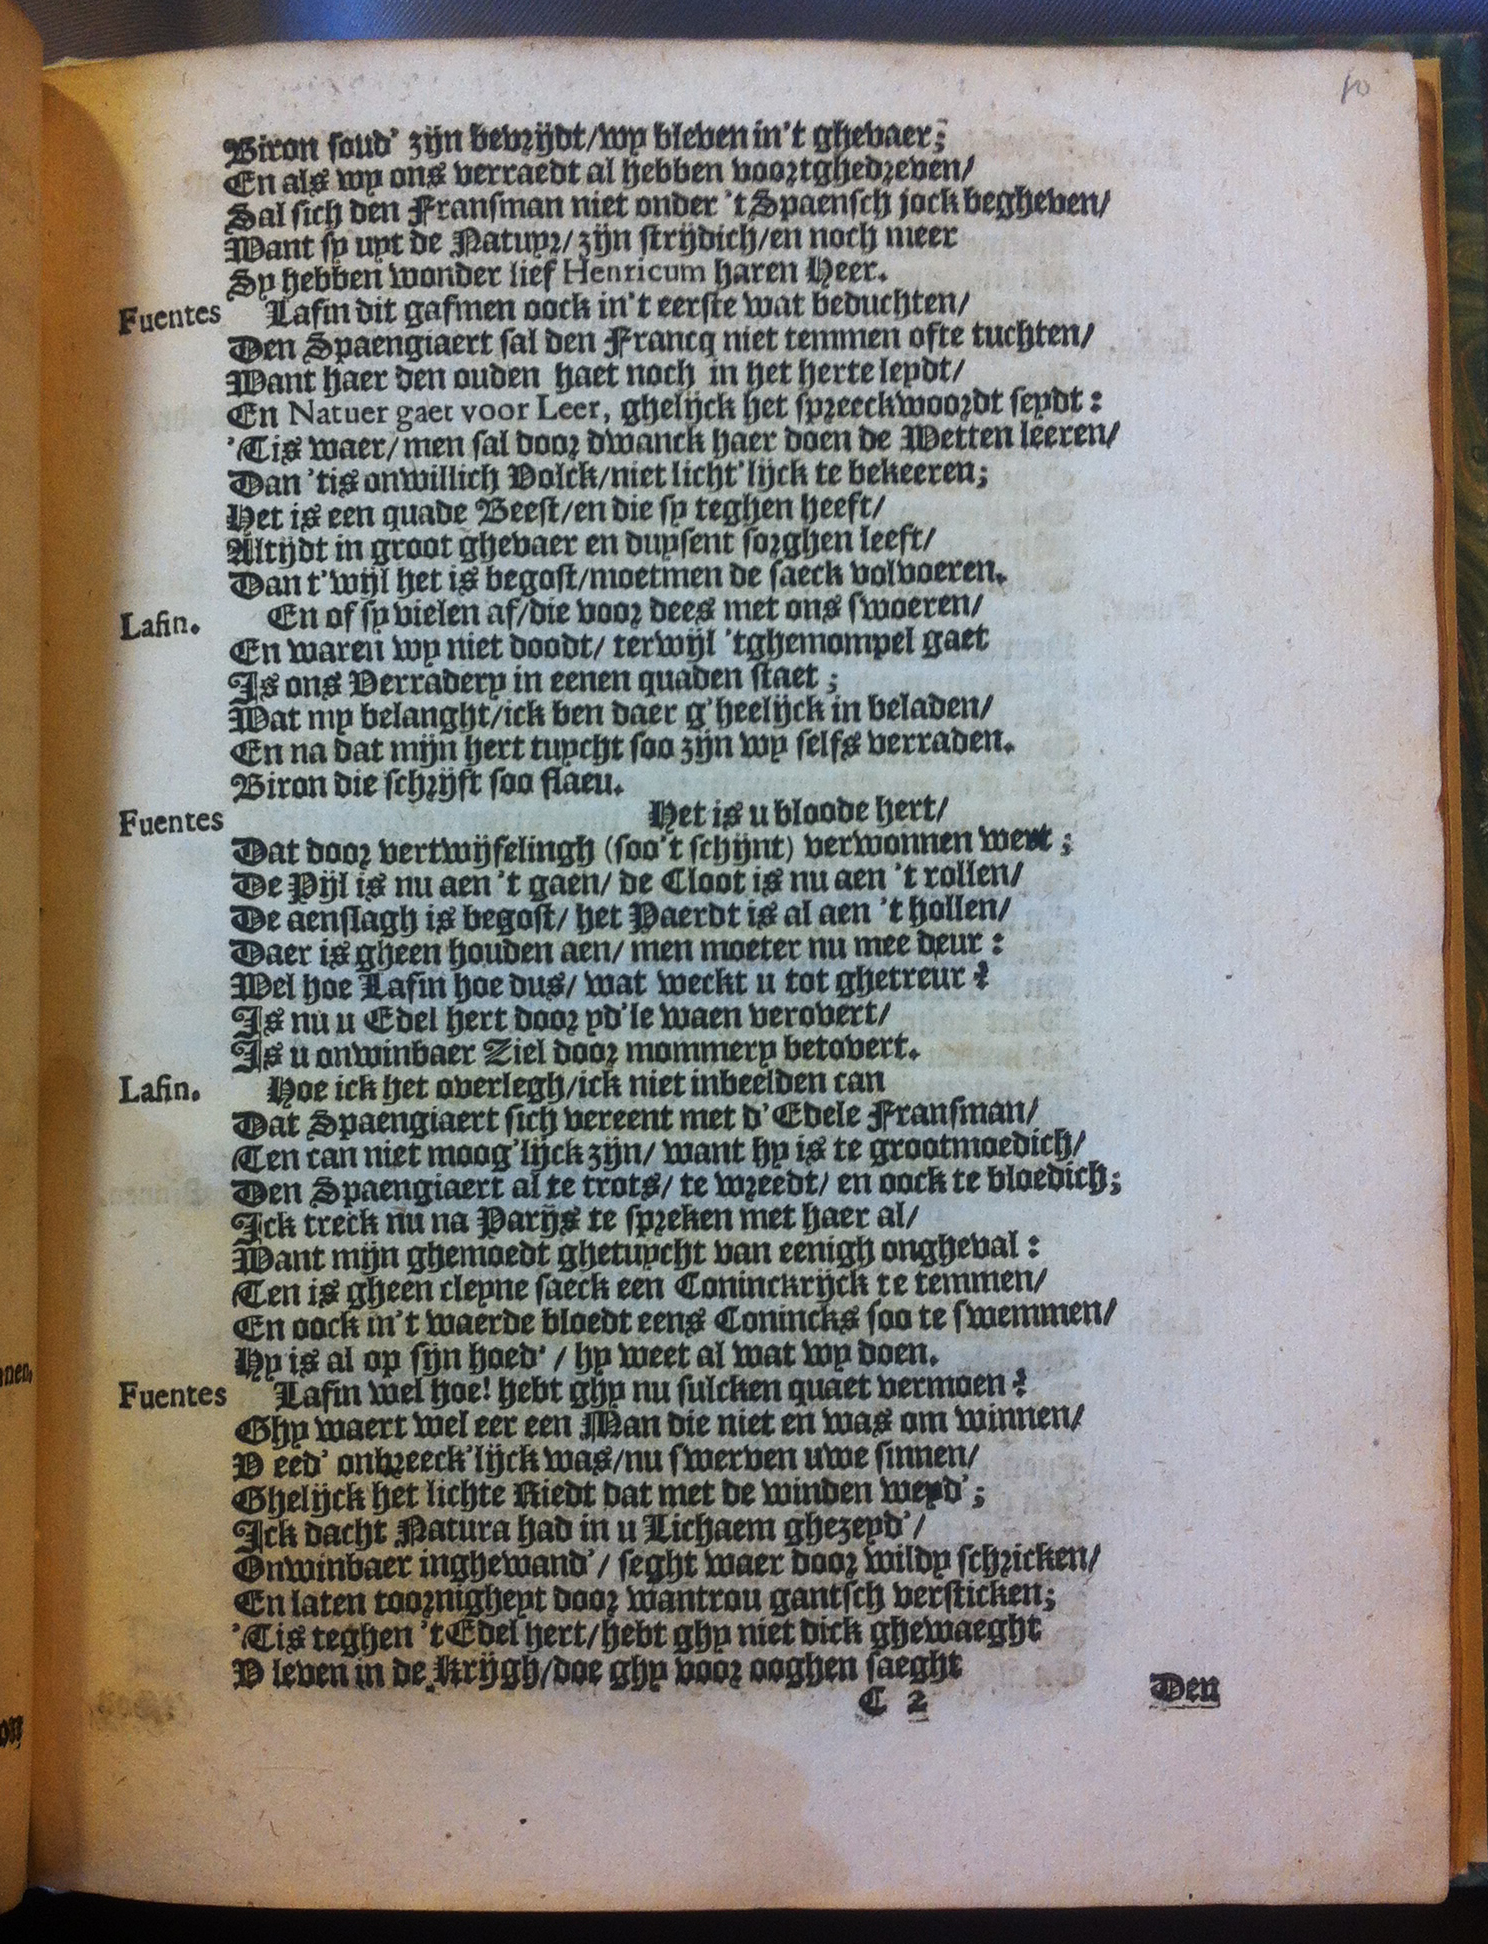 10
Biron soud' zijn bevrijdt/wy bleven in't ghevaer;
En als wy ons verraedt al hebben voortghedreven/
Sal sich den Fransman niet onder 't Spaensch jock begheven/
Want sy uyt de Natuyr/zijn strijdich/en noch meer
Sy hebben wonder lief Henricum haren Heer.
Fuentes Lafin dit gafmen oock in't eerste wat beduchten/
Den Spaengiaert sal den Francq niet temmen ofte tuchten/
Want haer den ouden haet noch in het herte leydt/
En Natuer gaet voor Leer, ghelijck het spreeckwoordt seydt:
'Tis waer/men sal door dwanck haer doen de Wetten leeren/
Dan 'tis onwillich Volck/niet licht'lijck te bekeeren;
Het is een quade Beest/en die sy teghen heeft/
Altijdt in groot ghevaer en duysent sorghen leeft/
Dan t'wijl het is begost/moetmen de saeck volvoeren.
Lafin. En of sy vielen af/die voor dees met ons swoeren/
En waren wy niet doodt/ terwijl 'tghemompel gaet
Is ons Verradery in eenen quaden staet;
Wat my belanght/ick ben daer g'heelijck in beladen/
En na dat mijn hert tuycht soo zijn wy selfs verraden.
Biron die schrijft soo flaeu.
Fuentes Het is u bloode hert/
Dat door vertwijfelingh (soo't schijnt) verwonnen wert;
De Pijl is nu aen 't gaen/ de Cloot is nu aen 't rollen/
De aenslagh is begost/ het Paerdt is al aen 't hollen/
Daer is gheen houden aen/ men moeter nu mee deur:
Wel hoe Lafin hoe dus/ wat weckt u tot ghetreur?
Is nu u Edel hert door yd'le waen verovert/
Is u onwinbaer Ziel door mommery betovert.
Lafin. Hoe ick het overlegh/ick niet inbeelden can
Dat Spaengiaert sich vereent met d'Edele Fransman/
Ten can niet moog'lijck zijn/ want hy is te grootmoedich/
Den Spaengiaert al te trots/ te wreedt/ en oock te bloedich;
Ick treck nu na Parijs te spreken met haer al/
Want mijn ghemoedt ghetuycht van eenigh ongheval:
Ten is gheen cleyne saeck een Coninckrijck te temmen/
En oock in't waerde bloedt eens Conincks soo te swemmen/
Hy is al op sijn hoed'/ hy weet al wat wy doen.
Fuentes Lafin wel hoe! hebt ghy nu sulcken quaet vermoen?
Ghy waert wel eer een Man die niet en was om winnen/
V eed' onbreeck'lijck was/nu swerven uwe sinnen/
Ghelijck het lichte Riedt dat met de winden weyd';
Ick dacht Natura had in u Lichaem ghezeyd'/
Onwinbaer inghewand'/ seght waer door wildy schricken/
En laten toornigheyt door wantrou gantsch versticken;
'Tis teghen 't Edel hert/hebt ghy niet dick ghewaeght
V leven in de Krijgh/doe ghy voor ooghen saeght
C 2 Den
nnen.
on